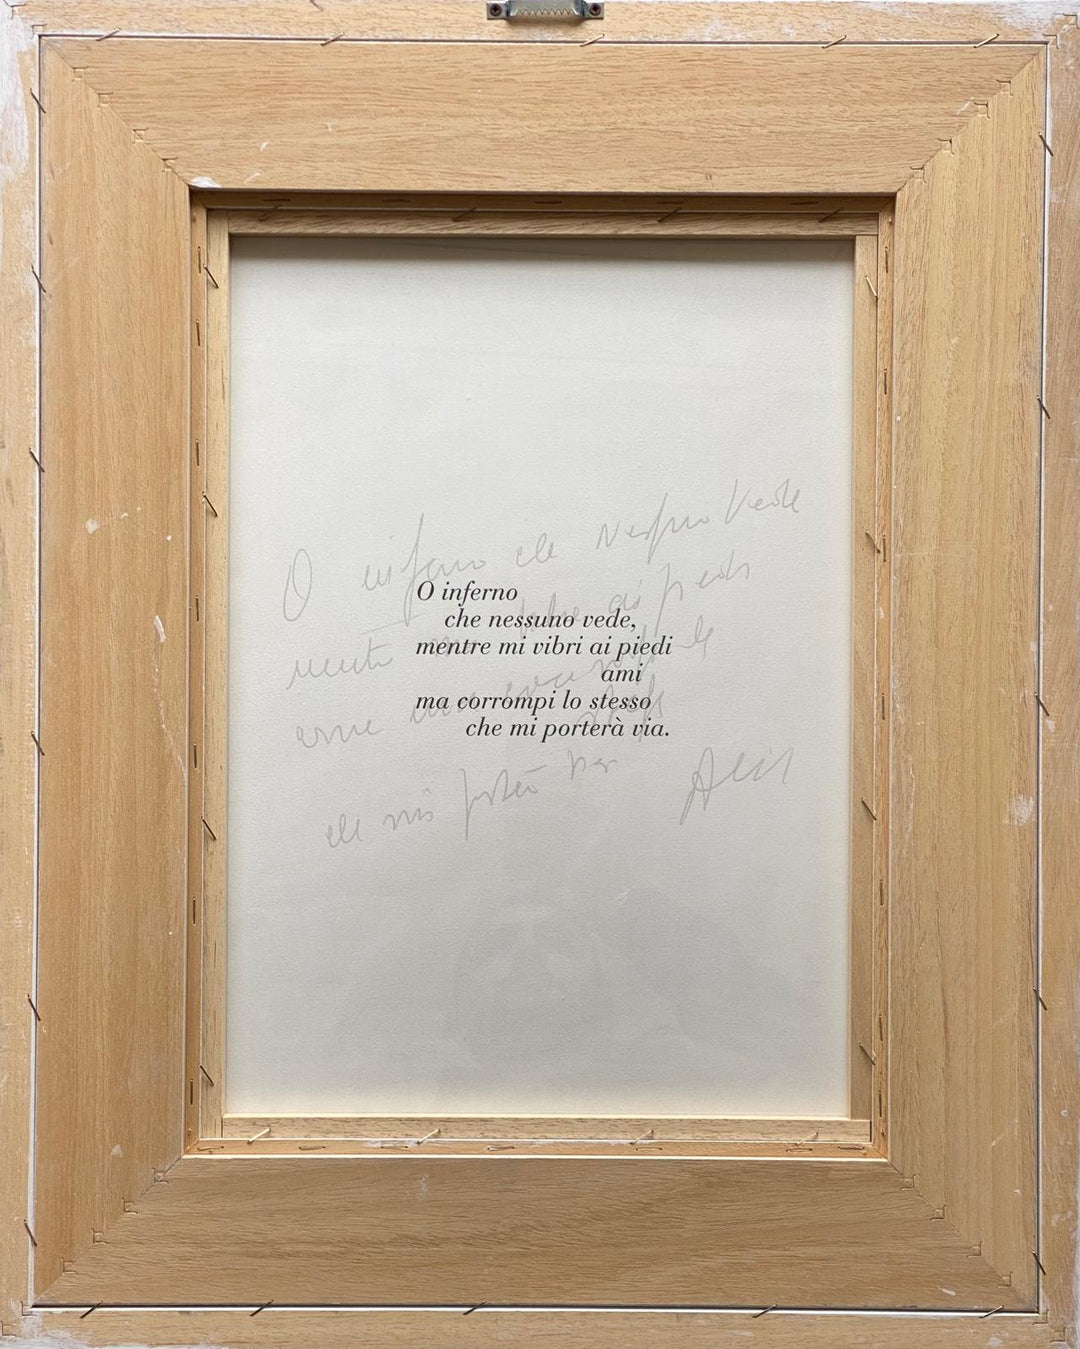 O inferno
che nessuno vede,
mentre mi vibri ai piedi
ami
ma corrompi lo stesso
che mi porterà via.
O inferno che nessuno vede
mentre mi ai piedi
come
che mi porterà